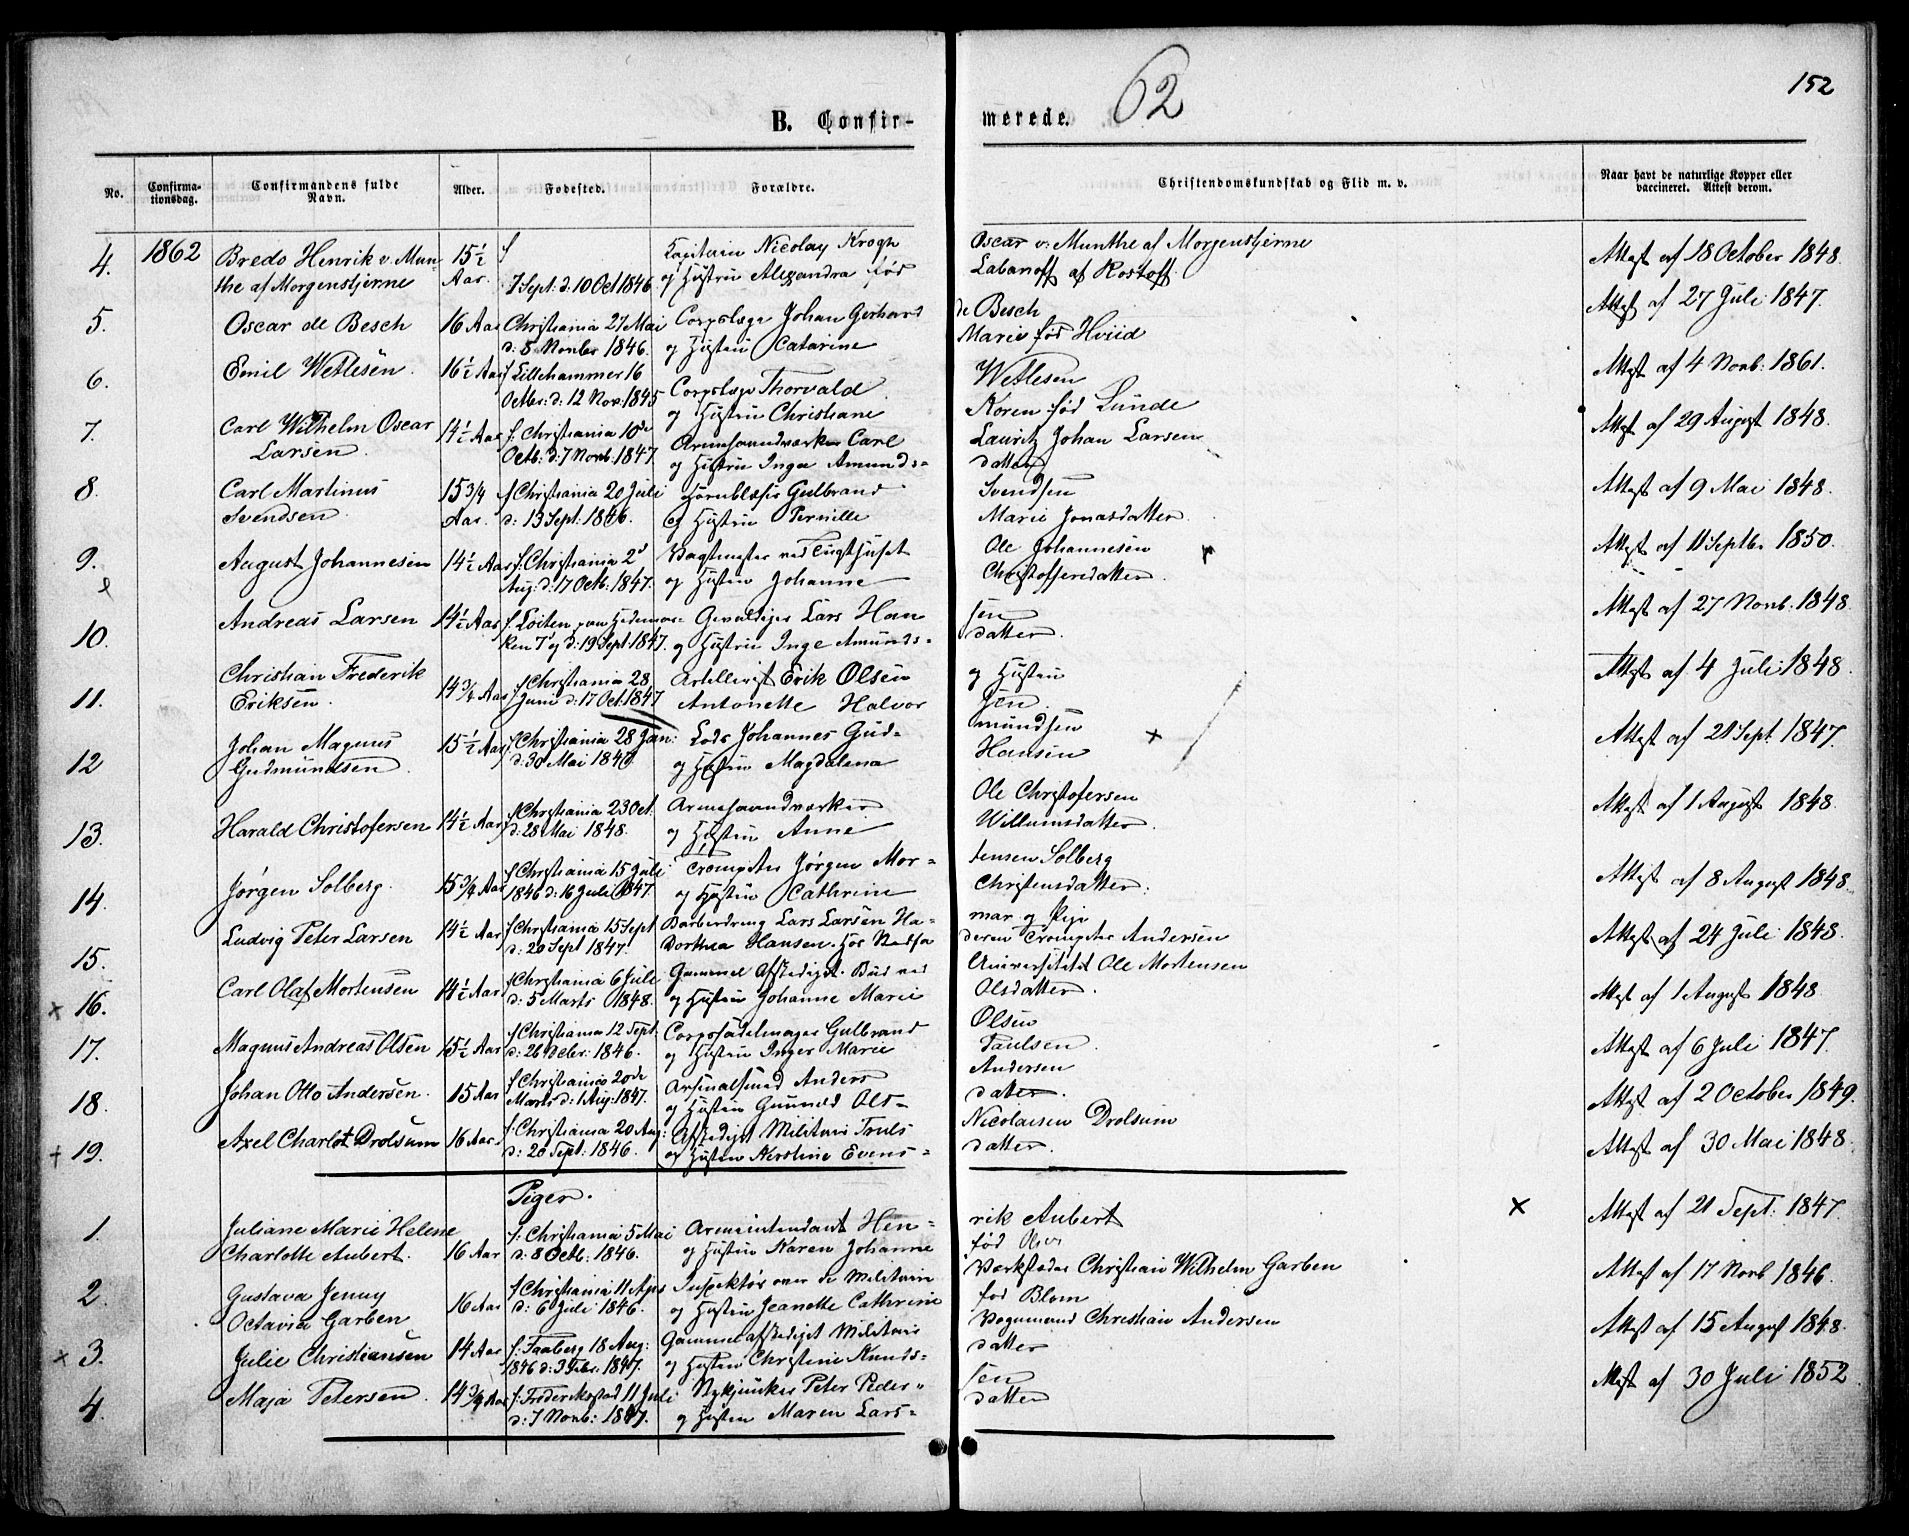 152
62
B. Confir-
merede.
No.
Confirma-
tionsdag.
Confirmandens fulde
Navn.
Alder.
Fødested.
Forældre.
Christendomskundskab og Flid m. v.
Naar havt de naturlige Kopper eller
vaccineret. Attest derom.
4. 1862 Bredo Henrik v. Mun- 15½ f Kapitain Nicolay Krogh Oscar v: Munthe af Morgenstjerne Attest af 18 October 1848.
the af Morgenstjerne Aar. 7 Sept: d: 10 Oct 1846. og Hustru Alexandra fød Labanoff af Rostoff.
5. Oscar de Besch 16 Aar Christiania 27 Mai Corpslæge Johan Gerhard de Besch Attest af 27 Juli 1847.
d: 8 Novbr 1846. og Hustru Catarine Marie fød Hviid
6. Emil Wetlesen. 16½ Aar f Lillehammer 16 Corpslæge Thorvald Wetlesen Attest af 4 Novb: 1861.
Octbr: d: 12 Nov: 1845 og Hustru Christiane Koren fød Lunde
7. Carl Wilhelm Oscar 14½ Aar f: Christiania 10de Carl Lauritz Johan Larsen Attest af 29 August 1848.
Larsen. Octb: d: 7 Novb: 1847 og Hustru Inger Amunds- datter
8. Carl Martinus 15 3/4 f Christiania 20 Juli Hornblæser Gulbrand Svendsen Attest af 9 Mai 1848.
Svendsen. Aar. d: 13 Sept: 1846. og Hustru Pernille Marie Jonasdatter.
9. August Johannesen 14½ Aar f: Christiania 2d Vagtmester ved Tugthuset Ole Johannesen Attest af 11 Septbr 1850.
Aug: d: 17 Octb. 1847. og Hustru Johanne Christoffersdatter.
10. Andreas Larsen 14½ Aar f. Løiten paa Hedemar- Gevaldiger Lars Han sen Attest af 27 Novb. 1848.
ken 7 og d: 19 Sept 1847. og Hustru Inge Amunds- datter.
11. Christian Frederik 14 3/4 Aar f Christiania 28 Artillerist Erik Olsen og Hustru Attest af 4 Juli 1848.
Eriksen. Juni d: 17 Oct. 1847 Antonette Halvor sen.
12 Johan Magnus 15½ Aar f Christiania 28 Jan: Lods Johannes Gud- mundsen Attest af 21 Sept 1847.
Gudmundsen. d: 30 Mai 1847 og Hustru Magdalena Hansen
13. Harald Christofersen 14½ Aar f Christiania 23 Oct. Ole Christofersen Attest af 1 August 1848.
d: 28 Mai 1848. og Hustru Anne Willumsdatter.
14. Jørgen Solberg. 15 3/4 Aar f Christiania 15 Juli Trompeter Jørgen Mor- tensen Solberg Attest af 8 August 1848.
1846 d: 16 Juli 1847. og Hustru Cathrine Christensdatter.
15. Ludvig Peter Larsen 14½ Aar f Christiania 15 Sept Barberdreng Lars Larsen Ha- mar og Pige Attest af 24 Juli 1848.
d: 20 Sept 1847. Dorthea Hansen. Hos Stedfa deren Trompeter Andersen
16. Carl Olaf Mortensen 14½ Aar f Christiania 6 Juli Gammel Afskediget. Bud ved Universitetet Ole Mortensen Attest af 1 August 1848.
d: 5 Marts 1848. og Hustru Johanne Marie Olsdatter.
17. Magnus Andreas Olsen 15½ Aar f Christiania 12 Sept. Corpssadelmager Gulbrand Olsen Attest af 6 Juli 1847.
d: 26 Decbr. 1846. og Hustru Inger Marie Paulsen.
18. Johan Otto Andersen. 15 Aar f Christiania 20de Arsenalsmed Anders Andersen Attest af 2 October 1849.
Marts d: 1 Aug: 1847. og Hustru Gunnild Ols- datter.
19. Axel Charlot Drolsum 16 Aar f: Christiania 20 Aug: Afskediget Militair Truls Nicolaisen Drolsum Attest af 30 Mai 1848.
d: 20 Sept: 1846. og Hustru Kirstine Evens- datter.
Piger.
1. Juliane Marie Helene f: Christiania 5 Mai Armeintendant Hen- rik Aubert Attest af 21 Sept. 1847.
Charlotte Aubert. 16 Aar d: 8 Octb. 1846. og Hustru Karen Johanne fød
2. Gustava Jenny 16 Aar f Christiania 11 Apr Inspektør over de Militaire Værksteder Christian Wilhelm Garben Attest af 17 Novb 1846.
Octavia Garben d: 6 Juli 1846. og Hustru Jeanette Cathrine fød Blom
3. Julie Christiansen 14 Aar f: Faaberg 18 Aug: Gammel afskediget Militair Vognmand Christian Andersen Attest af 15 August 1848.
1846 d: 3 Febr. 1847. og Hustru Christine Knuds- datter
4. Maja Petersen. 14 3/4 Aar f: Frederikstad 11 Juli Peter Peder- sen Attest af 30 Juli 1852
d: 7 Novb: 1847. og Hustru Maren Lars- datter